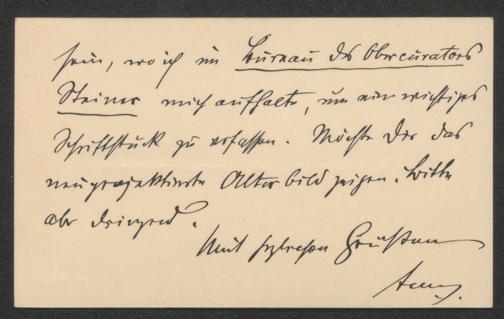 sein, wo ich im Bureau des Obercurators
Steiner mich aufhalte, um ein wichtiges
Schriftstück zu verfassen. Möchte Dir das
neuprojektierte Altarbild zeigen. Bitte
aber dringend.
Mit Grüßen